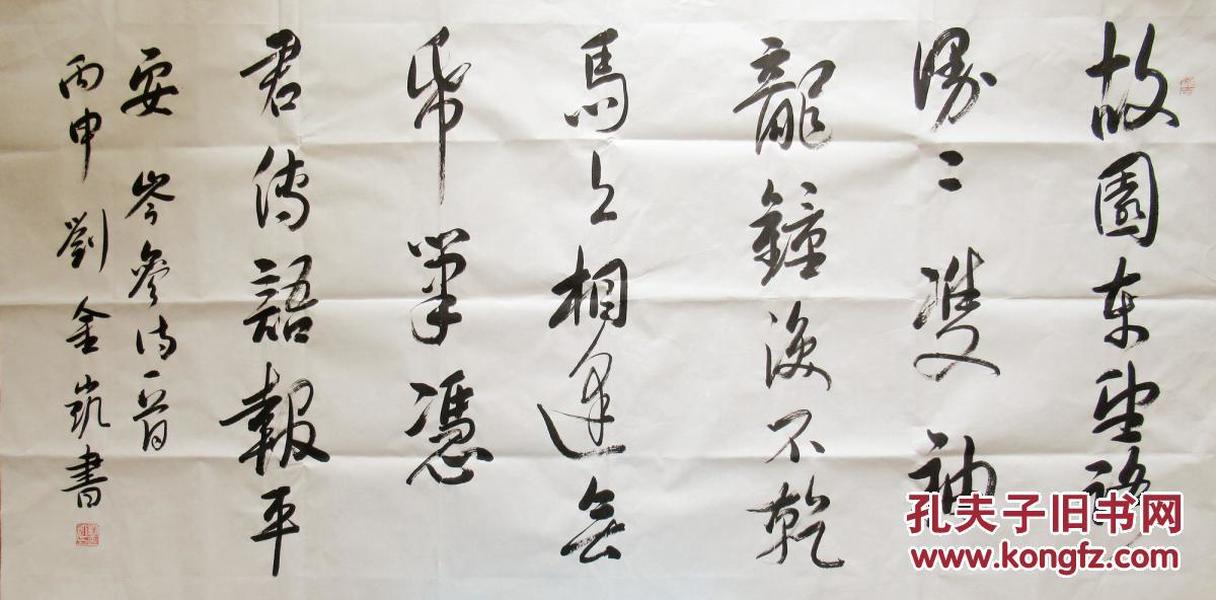 故園东望路
漫〻雙袖
龍鐘淚不乾
馬上相逢無
紙筆憑
君傳語報平
安 岑參诗一首
丙申 劉金凱書
孔夫子旧书网
www.kongfz.com